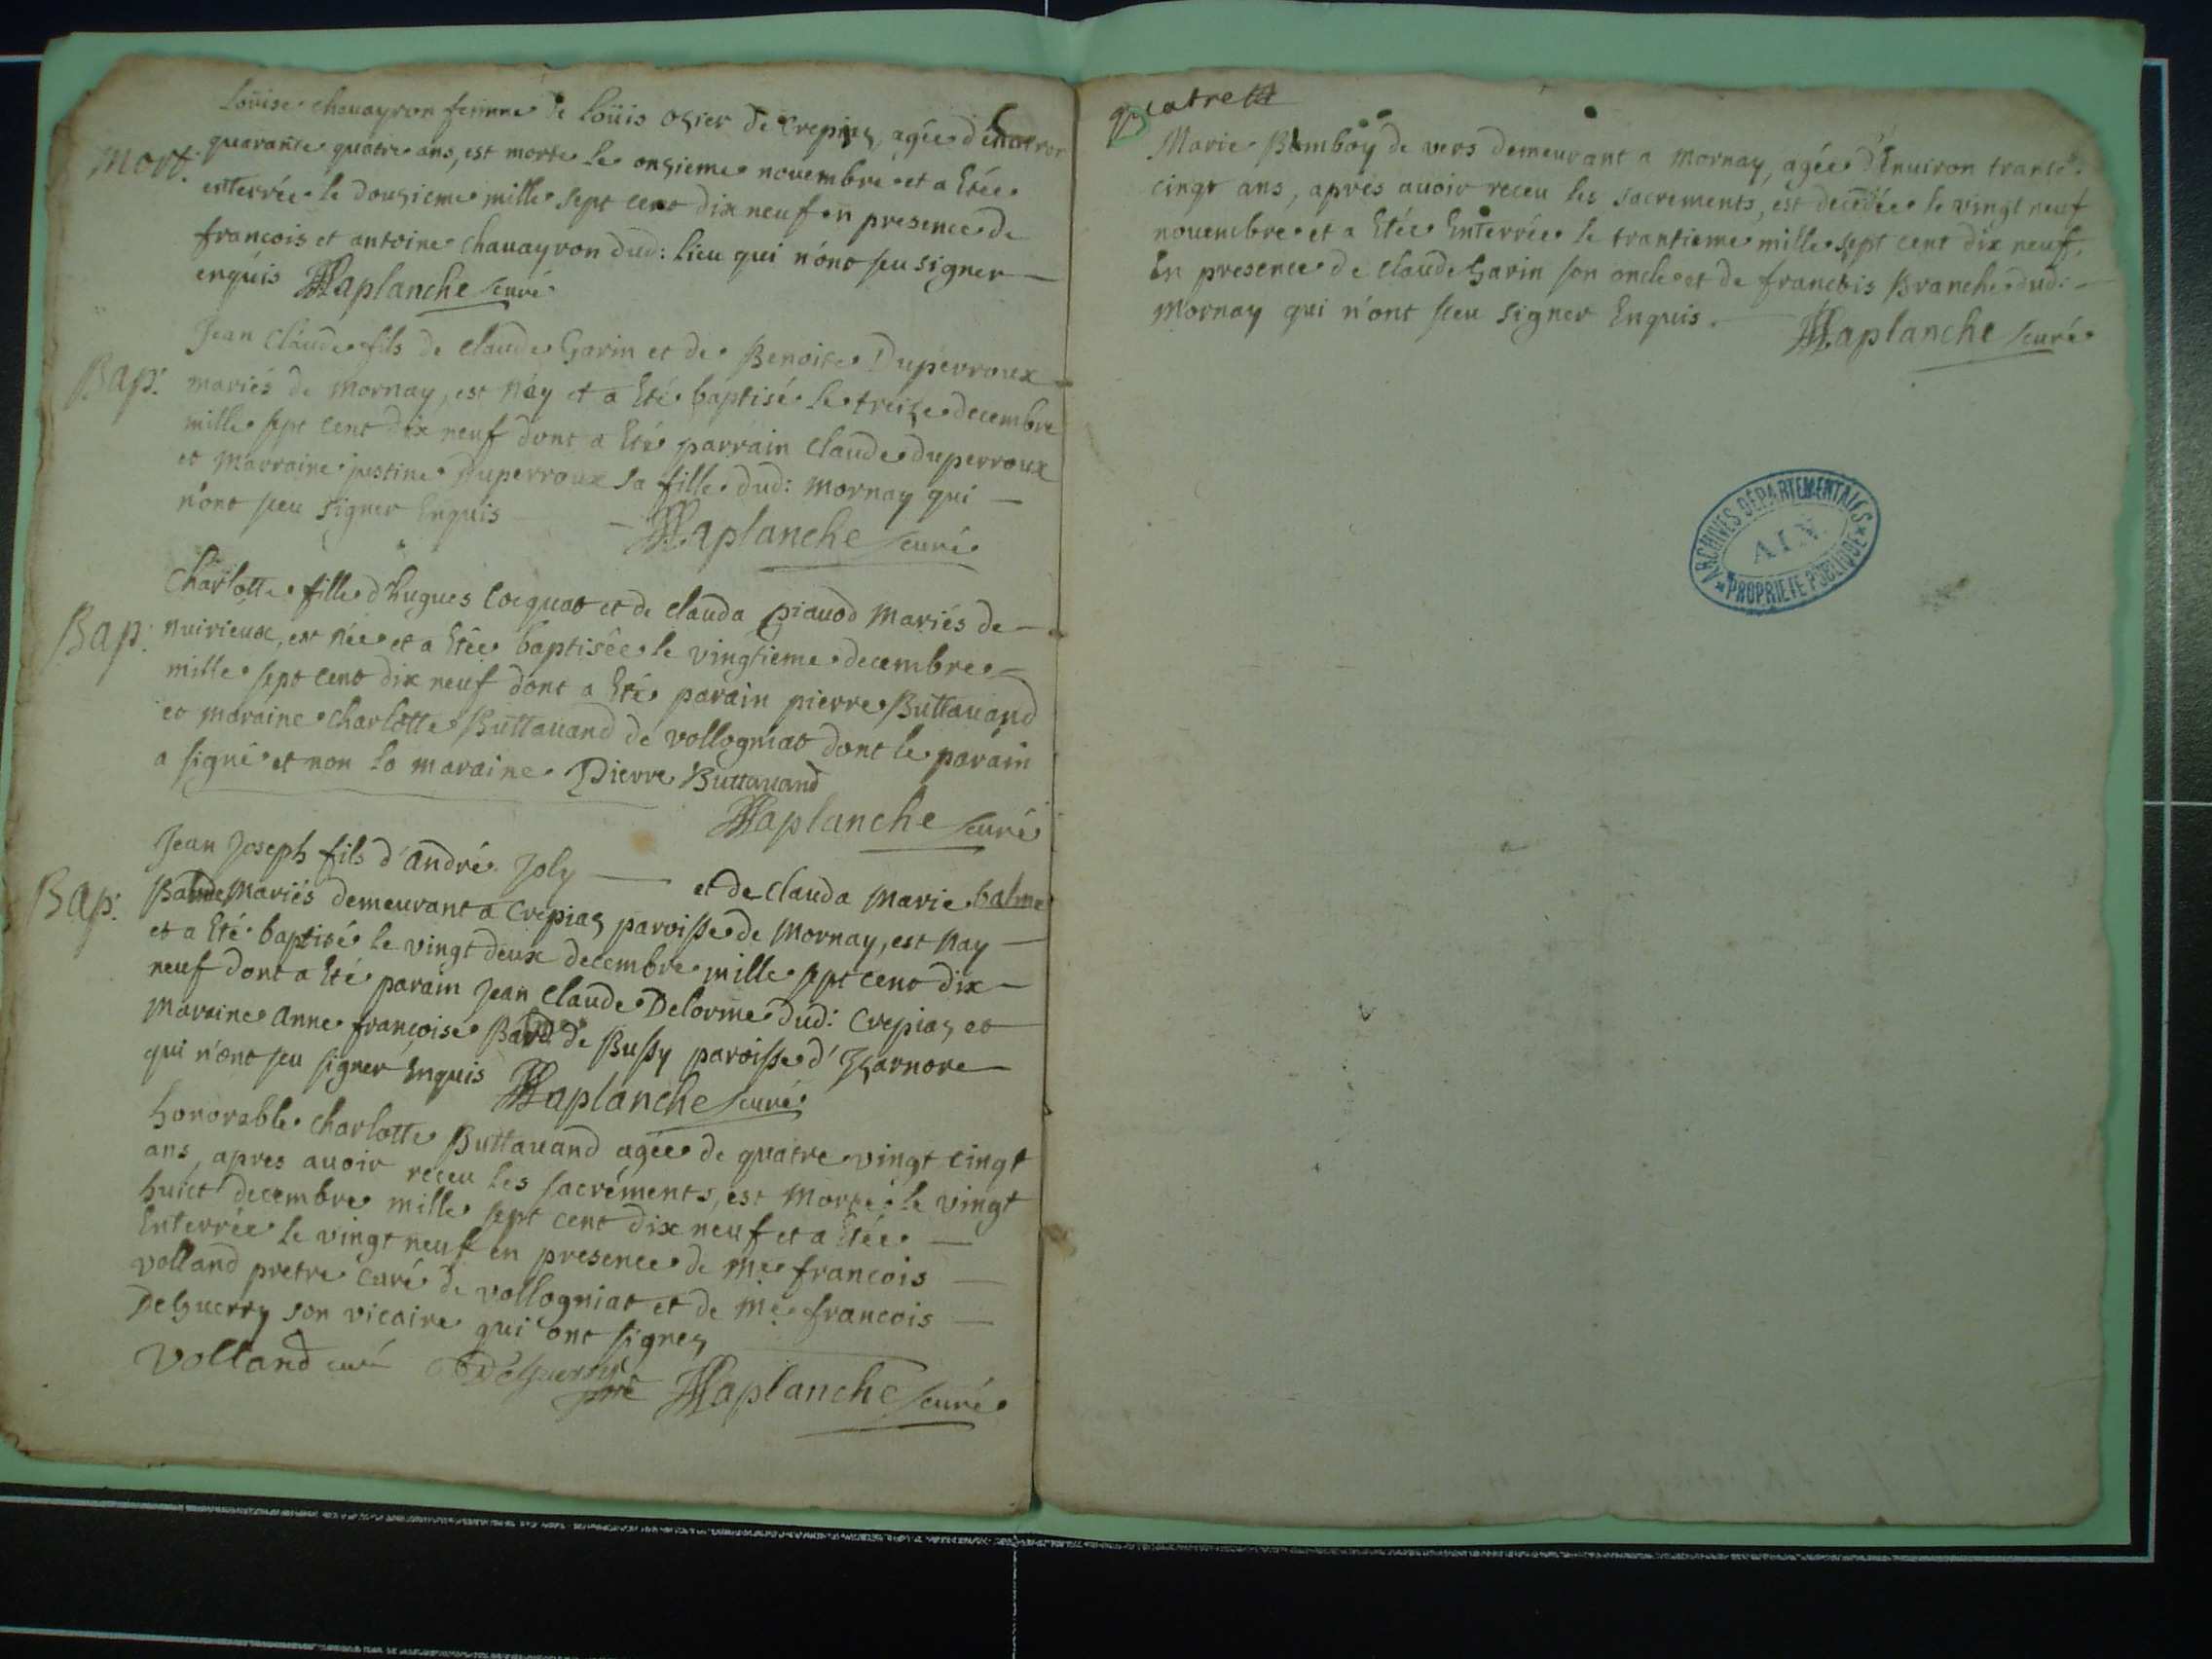 Loüise chauayron femme de Loüis osier de Crepiaz, agée d'enuiron
Mort. quarante quatre ans, est morte le onzieme nouembre et a Etée
enterrée le douzieme mille sept cent dix neuf en presence de
francois et antoine chauayron dud: lieu qui n'ont sceu signer
enquis Laplanche curé
Jean Claude fils de claude Garin et de Benoite Duperroux
Bap: mariés de Mornay, est náy et a Eté baptisé le treize decembre
mille sept cent dix neuf dont a Eté parrain Claude duperroux
et Marraine justine Duperroux sa fille dud: Mornay qui
n'ont sceu signer Enquis
Laplanche curé
Charlotte fille d'hugues Cocquat et de clauda piauod Mariés de
Bap: nuirieux, est née et a Etée baptisée le vingtieme decembre
mille sept cent dix neuf dont a Eté parain pierre Buttauand
et maraine Charlotte Buttauand de vollogniat dont le parain
a signé et non la maraine Pierre Buttauand
Laplanche curé
Jean Joseph fils d'André Joly et de Clauda Marie balme
Bap: Mariés demeurant a Crepiaz paroisse de Mornay, est nay
et a Eté baptisé le vingt deux decembre mille sept cent dix
neuf dont a Eté parain Jean Claude Delorme dud: Crepiaz et
Maraine Anne françoise de Bussy paroisse d'Izarnore
qui n'ont sceu signer Enquis Laplanche curé
honorable Charlotte Buttauand agée de quatre vingt cingt
ans, apres auoir receu les sacréments, est Morte le vingt
huict decembre mille sept cent dix neuf et a Etée
Enterrée le vingt neuf en presence de Me francois
volland pretre curé de vollogniat et de Me francois
Delguerry son vicaire qui ont signez
Volland curé Delguerry ptre Laplanche curé
quatre
Marie Bomboy de vers demeurant a Mornay, agée d'Enuiron trante
cingt ans, aprés auoir receu les sacrements, est decedée le vingt neuf
nouembre et a Etée Enterrée le trantieme mille sept cent dix neuf.
En presence de claude Garin son oncle et de francois Branche dud:
Mornay qui n'ont sceu signer Enquis.
Laplanche curé
ARCHIVES DÉPARTEMENTALES
AIN
PROPRIÉTÉ PUBLIQUE